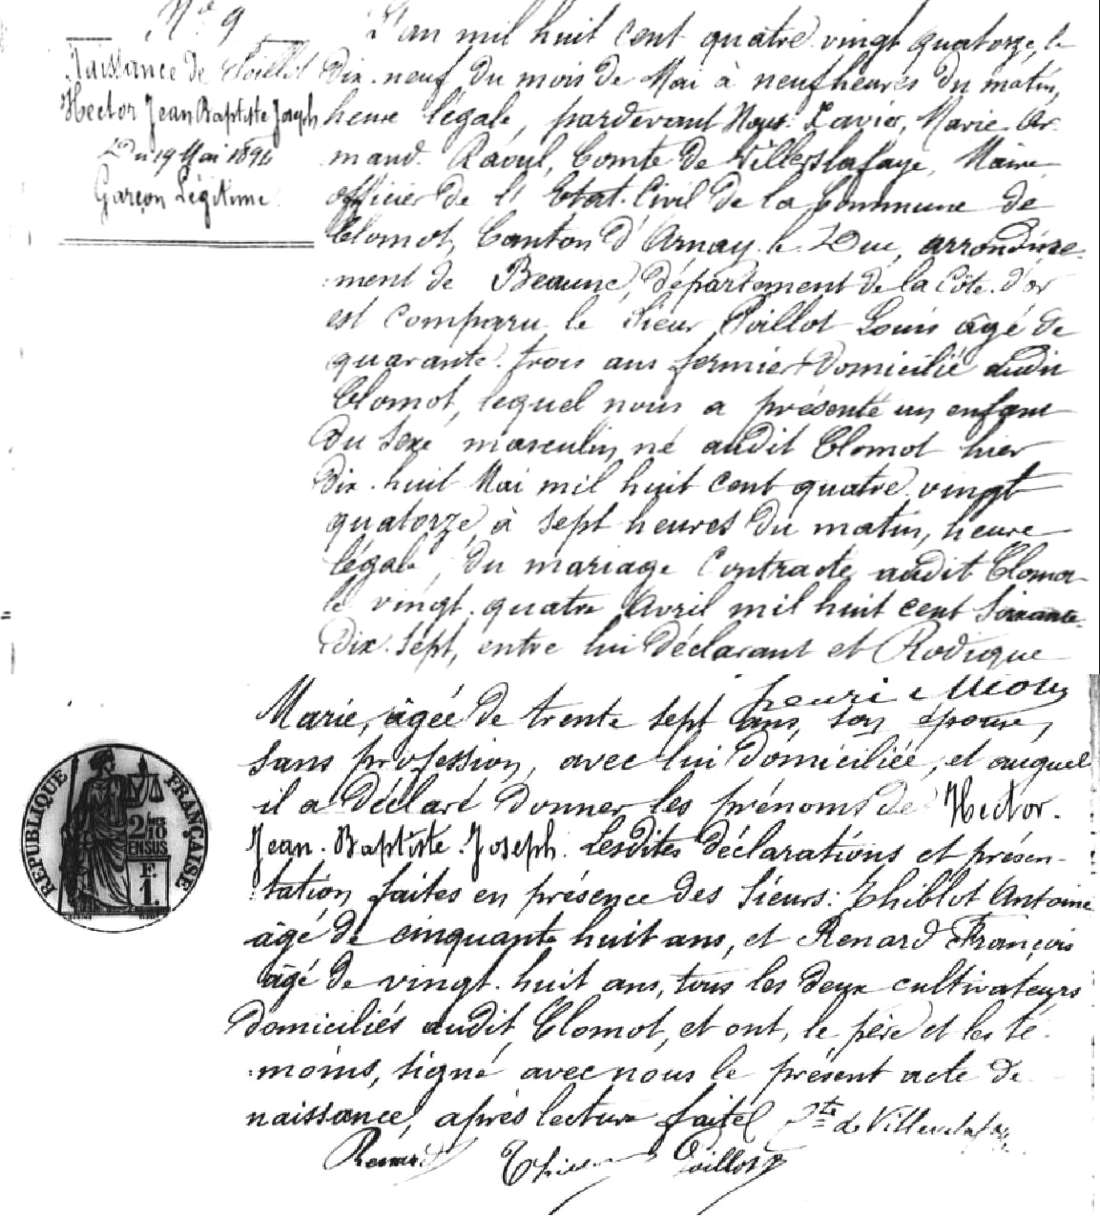 N° 9
Naissance de Poillot
Hector Jean Baptiste Joseph
Du 19 Mai 1894
Garçon Légitime
L'an mil huit cent quatre vingt quatorze, le
dix-neuf du mois de Mai à neuf heures du matin,
heure légale, pardevant Nous Xavier, Marie Ar-
mand Raoul, Comte de Villerslafaye, Maire
officier de l'Etat-Civil de la Commune de
Clomot, Canton d'Arnay-le-Duc, arrondisse-
ment de Beaune, département de la Côte-d'or
est comparu le Sieur Poillot Louis âgé de
quarante-trois ans fermier domicilié audit
Clomot, lequel nous a présenté un enfant
du sexe masculin né audit Clomot hier
dix-huit Mai mil huit cent quatre-vingt
quatorze, à sept heures du matin, heure
légale, du mariage contracté audit Clomot
le vingt-quatre Avril mil huit cent soixante-
dix-sept, entre lui déclarant et Rodrigue
Marie, âgée de trente sept ans, son épouse,
sans profession, avec lui domiciliée, et auquel
il a déclaré donner les prénoms de Hector-
Jean-Baptiste-Joseph. Lesdites déclarations et présen-
tation faites en présence des Sieurs: Thiblot Antoine
âgé de cinquante huit ans, et Renard François
âgé de vingt-huit ans, tous les deux cultivateurs
domiciliés audit Clomot, et ont, le père et les té-
moins, signé avec nous le présent acte de
naissance, après lecture faite
Cte de Villerslafaye
Renard Poillot
RÉPUBLIQUE FRANÇAISE
2/10
EN SUS
F.
1.